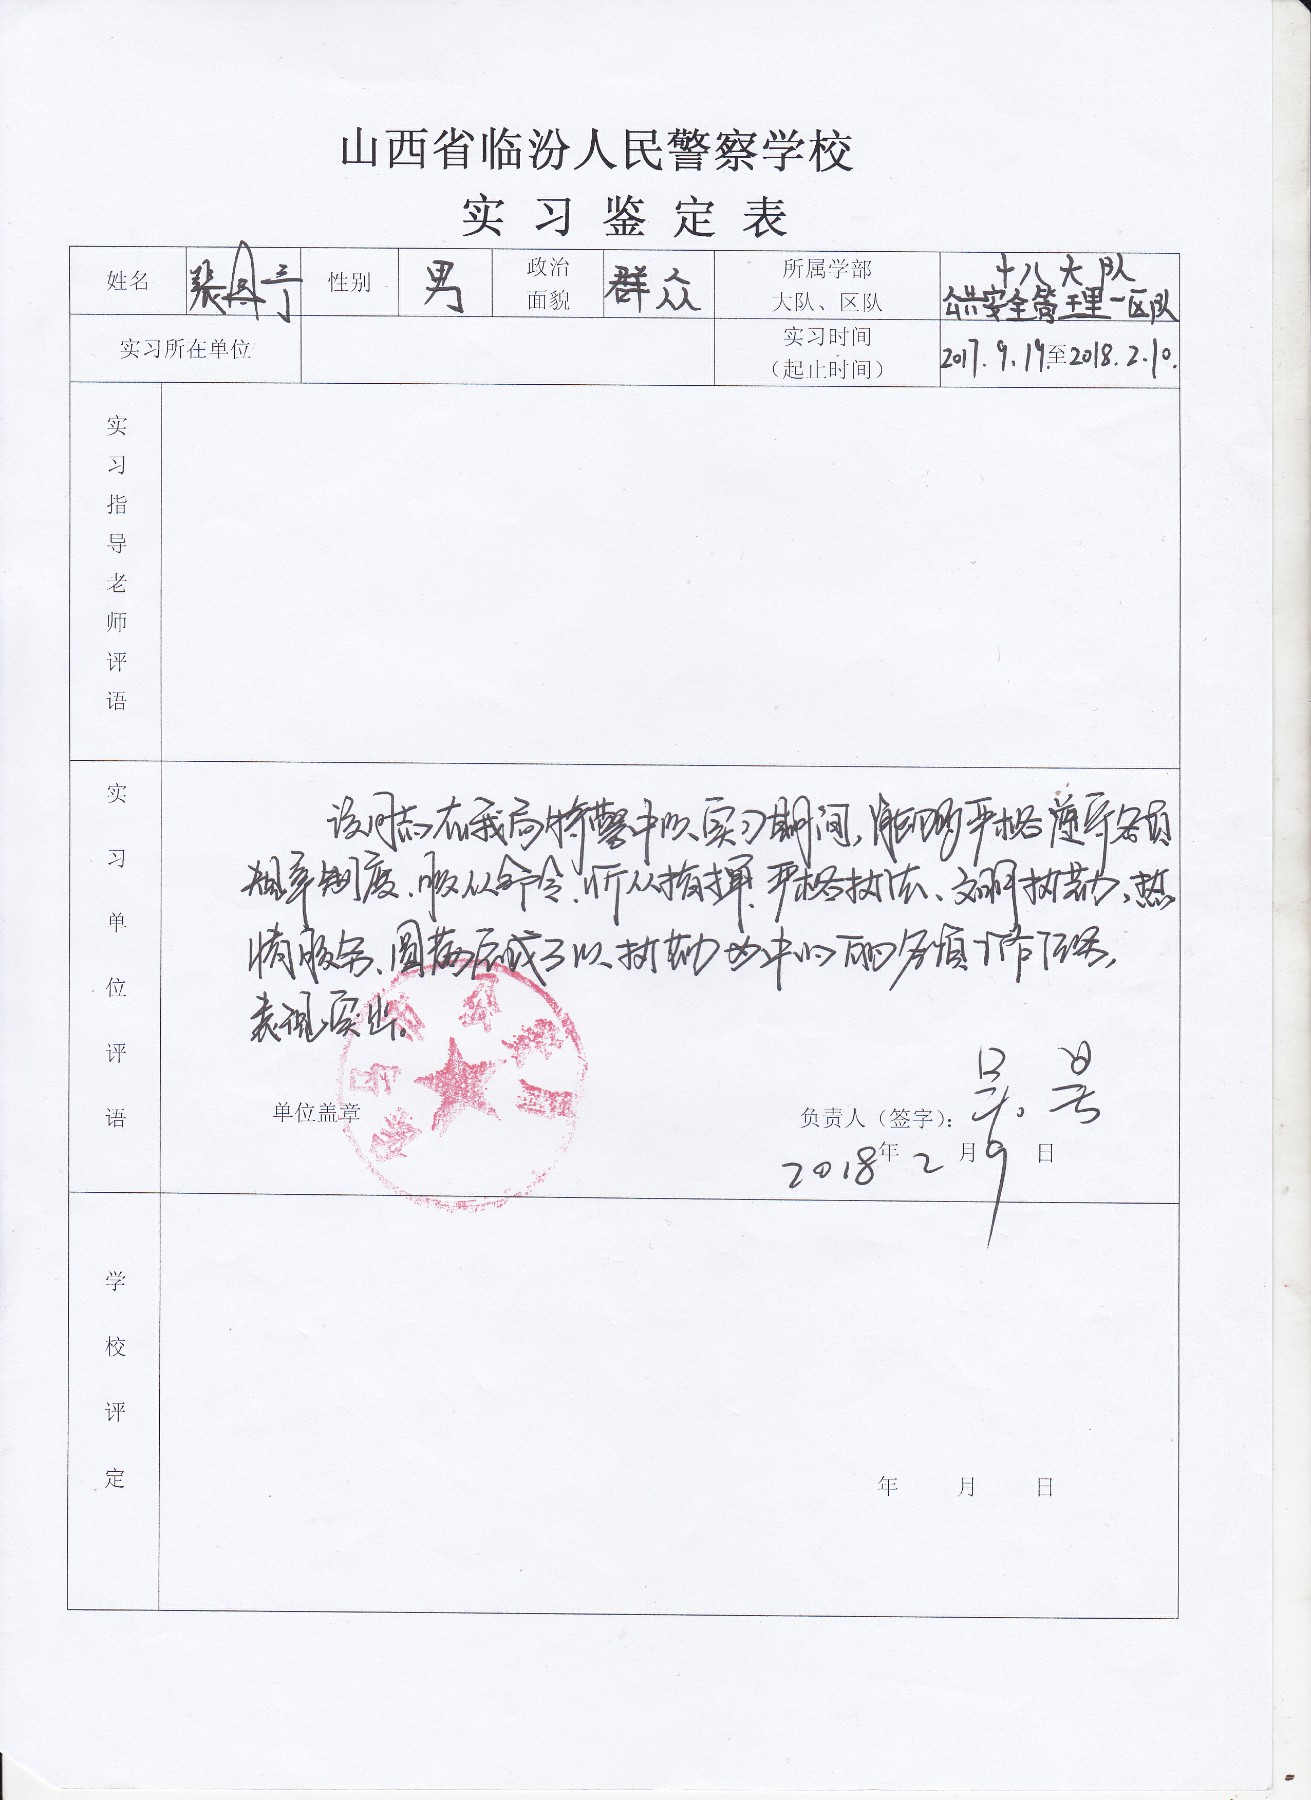 山西省临汾人民警察学校
实习鉴定表
姓名 张 性别 男 政治面貌 群众 所属学部大队、区队 十八大队
公共安全管理一区队
实习所在单位 实习时间（起止时间） 2017.9.19.至2018.2.10.
实习指导老师评语
实习单位评语
该同志在我局特警中队实习期间，能够严格遵守各项
规章制度、服从命令、听从指挥、严格执法、文明执勤、热
情服务、圆满完成了以执勤为中心的各项工作任务，
表现突出。
单位盖章
负责人（签字）：
2018年2月9日
学校评定
年 月 日